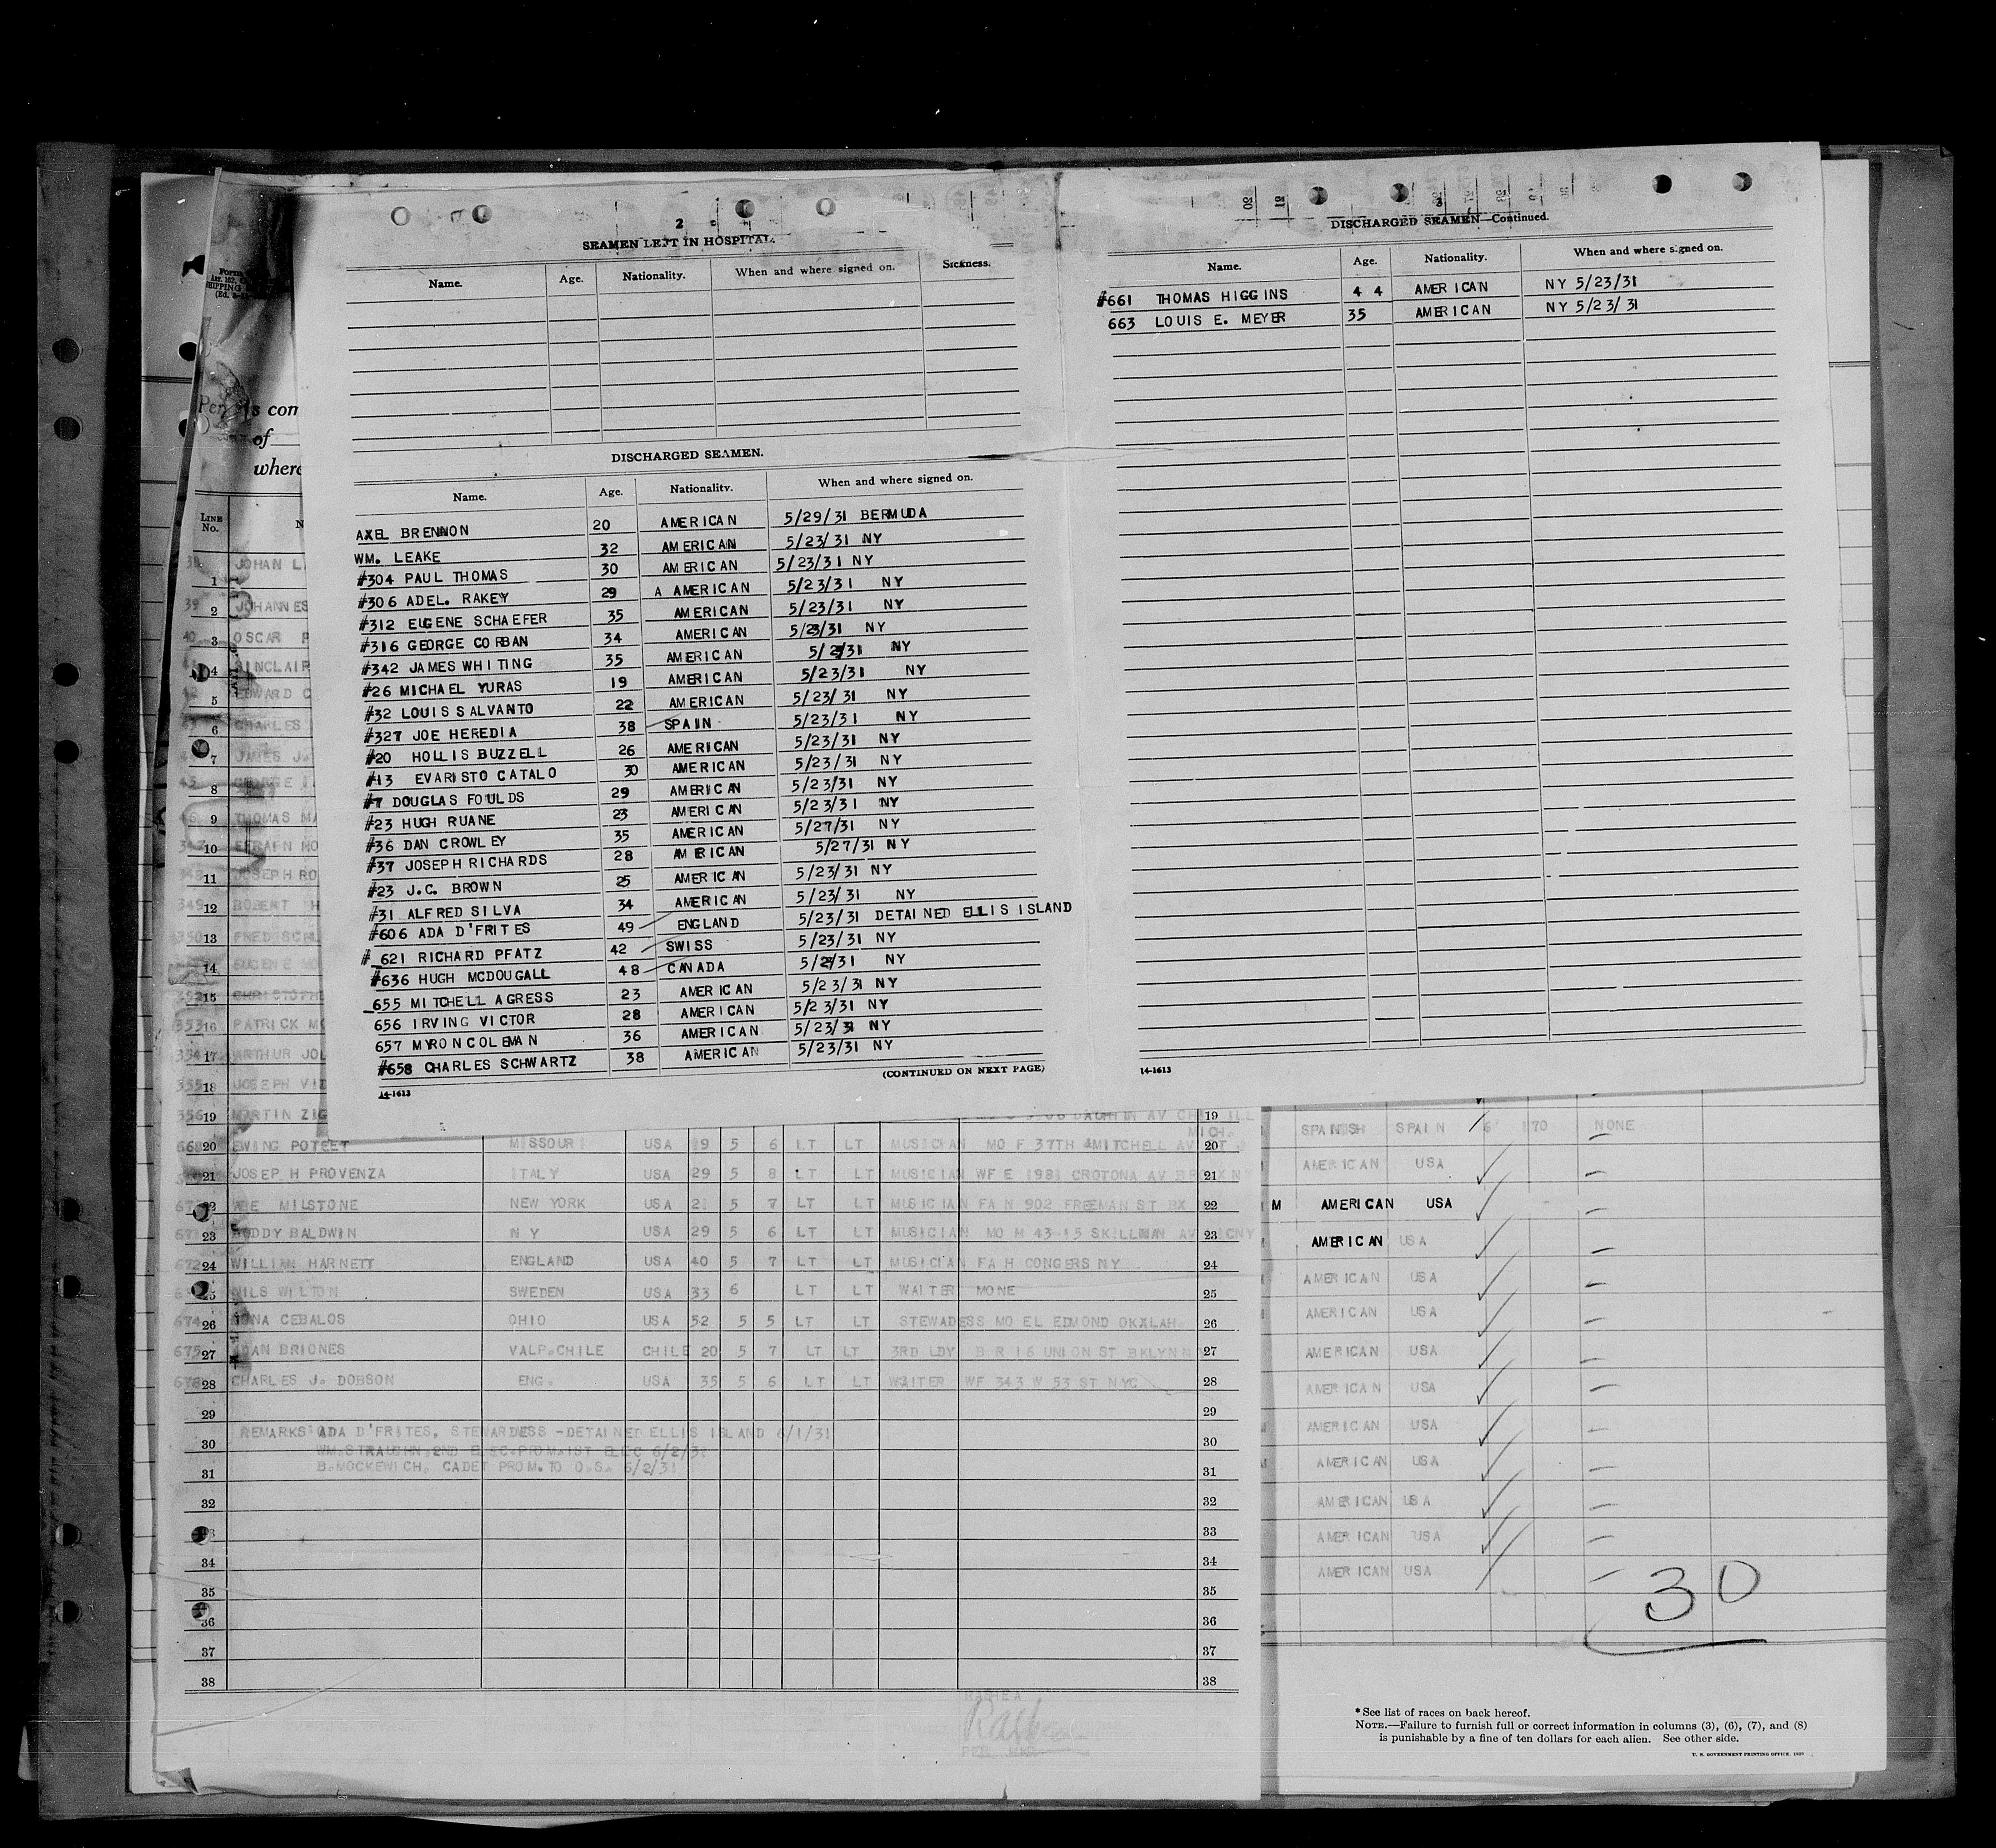 2
SEAMEN LEFT IN HOSPITAL.
Name. Age. Nationality. When and where signed on. Sickness.
DISCHARGED SEAMEN.
Name. Age. Nationality. When and where signed on.
AXEL BRENNON 20 AMERICAN 5/29/31 BERMUDA
WM. LEAKE 32 AMERICAN 5/23/31 NY
#304 PAUL THOMAS 30 AMERICAN 5/23/31 NY
#306 ADEL. RAKEY 29 A AMERICAN 5/23/31 NY
#312 EUGENE SCHAEFER 35 AMERICAN 5/23/31 NY
#316 GEORGE CORBAN 34 AMERICAN 5/23/31 NY
#342 JAMES WHITING 35 AMERICAN 5/2/31 NY
#26 MICHAEL YURAS 19 AMERICAN 5/23/31 NY
#32 LOUIS SALVANTO 22 AMERICAN 5/23/31 NY
#327 JOE HEREDIA 38 SPAIN 5/23/31 NY
#20 HOLLIS BUZZELL 26 AMERICAN 5/23/31 NY
#13 EVARISTO CATALO 30 AMERICAN 5/23/31 NY
#7 DOUGLAS FOULDS 29 AMERICAN 5/23/31 NY
#23 HUGH RUANE 23 AMERICAN 5/23/31 NY
#36 DAN CROWLEY 35 AMERICAN 5/27/31 NY
#37 JOSEPH RICHARDS 28 AMERICAN 5/27/31 NY
#23 J.C. BROWN 25 AMERICAN 5/23/31 NY
#31 ALFRED SILVA 34 AMERICAN 5/23/31 NY
#606 ADA D'FRITES 49 ENGLAND 5/23/31 DETAINED ELLIS ISLAND
# 621 RICHARD PFATZ 42 SWISS 5/23/31 NY
#636 HUGH MCDOUGALL 48 CANADA 5/2/31 NY
655 MITCHELL AGRESS 23 AMERICAN 5/23/31 NY
656 IRVING VICTOR 28 AMERICAN 5/23/31 NY
657 MYRON COLEMAN 36 AMERICAN 5/23/31 NY
#658 CHARLES SCHWARTZ 38 AMERICAN 5/23/31 NY
(CONTINUED ON NEXT PAGE)
14-1613
DISCHARGED SEAMEN—Continued.
Name. Age. Nationality. When and where signed on.
#661 THOMAS HIGGINS 44 AMERICAN NY 5/23/31
663 LOUIS E. MEYER 35 AMERICAN NY 5/23/31
14-1613
Form
SHIPPING
s con
of
where
LINE No. N
1 JOHAN L
39 2 JOHANNES
40 3 OSCAR P
4 SINCLAIR
5 EDWARD C
6 CHARLES
7 JAMES J.
8 GEORGE
9 THOMAS MA
10 EFRAIN MO
11 JOSEPH RO
349 12 ROBERT H
350 13 FRED SCHL
14 EUGENE MO
15 CHRISTOPH
353 16 PATRICK MC
354 17 ARTHUR JOL
355 18 JOSEPH VID
356 19 MARTIN ZIG 19
MICH.
20 EWING POTEET MISSOURI USA 19 5 6 LT LT MUSICIAN MO F 37TH &MITCHELL AV 20
21 JOSEPH PROVENZA ITALY USA 29 5 8 LT LT MUSICIAN WF E 1981 CROTONA AV BRONX NY 21
MILSTONE NEW YORK USA 21 5 7 LT LT MUSICIAN FA N 902 FREEMAN ST BX 22
23 BUDDY BALDWIN N Y USA 29 5 6 LT LT MUSICIAN MO M 43-15 SKILLMAN AV LICNY 23
672 24 WILLIAM HARNETT ENGLAND USA 40 5 7 LT LT MUSICIAN FA H CONGERS NY 24
NILS WILTON SWEDEN USA 33 6 LT LT WAITER MONE 25
674 26 CEBALOS OHIO USA 52 5 5 LT LT STEWADESS MO EL EDMOND OKALAH. 26
675 27 BRIONES VALP.CHILE CHILE 20 5 7 LT LT 3RD LDY B R 16 UNION ST BKLYN N 27
676 28 CHARLES J. DOBSON ENG. USA 35 5 6 LT LT WAITER WF 343 W 53 ST NYC 28
29 29
30 REMARKS: ADA D'FRITES, STEWARDESS -DETAINED ELLIS ISLAND 6/1/31 30
WM.STRAUGHN 2ND ELEC.PROM.1ST ELEC 6/2/31
31 B.MOCKEWICH, CADET PROM.TO O.S. 6/2/31 31
32 32
33
34 34
35 35
36 36
37 37
38 38
SPANISH SPAIN 6 170 NONE
AMERICAN USA
M AMERICAN USA
AMERICAN USA
AMERICAN USA
AMERICAN USA
AMERICAN USA
AMERICAN USA
AMERICAN USA
AMERICAN USA
AMERICAN USA
AMERICAN USA
AMERICAN USA
30
* See list of races on back hereof.
NOTE.—Failure to furnish full or correct information in columns (3), (6), (7), and (8)
is punishable by a fine of ten dollars for each alien. See other side.
U. S. GOVERNMENT PRINTING OFFICE